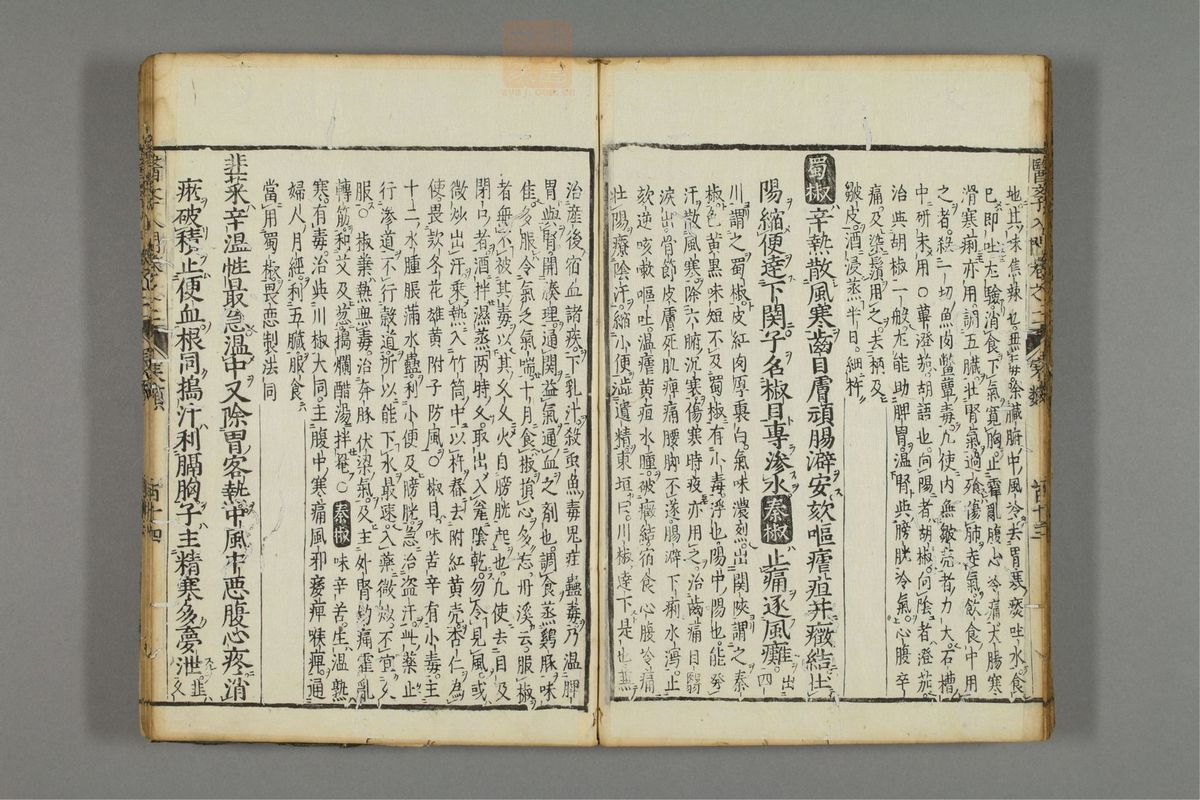 地其味焦辣也無毒療臟腑中風冷去胃寒痰吐水食
已即吐尤驗消食下氣寬胸止霍亂腹心冷痛大腸寒
滑寒痢亦用調五臟壯腎氣過飱傷肺走氣飲食中用
之者殺一切魚肉鱉蕈毒凡使內無皺売者力大石槽
中研末用○蓽澄茄胡語也向陽者胡椒向陰者澄茄
治與胡椒一般尤能助脾胃溫腎與膀胱冷氣心腹卒
痛及染鬚用之去柄及
皺皮酒浸蒸半日細杵
蜀椒 辛熱散風寒齒目膚頑腸澼安欬嘔瘧疸并癥結壯
陽縮便達下関子名椒目專滲水 秦椒 止痛逐風癰出
川謂之蜀椒皮紅肉厚裏白氣味濃烈出関陝謂之秦
椒色黃黑味短不及蜀椒有小毒浮也陽中陽也能發
汗散風寒除六腑沉寒傷寒時疫亦用之治齒痛目翳
淚出骨節皮膚死肌痺痛腰脚不遂腸澼下痢水瀉止
欬逆咳嗽嘔吐溫瘧黃疸水腫破癥結宿食心腹冷痛
壯陽療陰汗縮小便澁遺精東垣曰川椒達下是也兼
治産後宿血諸疾下乳汁殺虫魚毒鬼疰蠱毒乃溫脾
胃與腎開腠理通関益氣通血之劑也調食蒸鷄豚味
佳多服令氣乏氣喘十月食椒損心多忘丹溪云服椒
者無不被其毒以其久久火自膀胱起也凡使去目及
閉口者酒拌濕蒸兩時久取出入甕陰乾勿令見風或
微炒出汗乘熱入竹筒中以杵舂去附紅黃壳杏仁為
使畏欵冬花雄黃附子防風○椒目味苦辛有小毒主
十二水腫脹滿水蠱利小便及膀胱急治盜汗此藥止
行滲道不行穀道所以能下水最速入藥微炒不宜久
服○椒葉熱無毒治奔豚伏梁氣及主外腎釣痛霍亂
轉筋和艾及葱搗爛醋湯拌罨○ 秦椒 味辛苦生溫熟
寒有毒治與川椒大同主腹中寒痛風邪痿痺昧痺通
婦人月經利五臟服食
當用蜀椒畏惡製法同
韭菜辛溫性最急溫中又除胃客熱中風中惡腹心疼消
瘀破積止便血根同搗汁利膈胸子主精寒多夢泄韭久